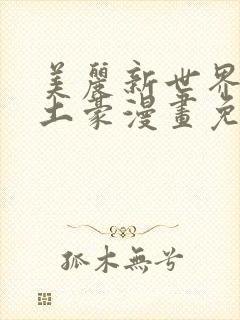 美麗新世界
土豪漫畫免
孤木無兮